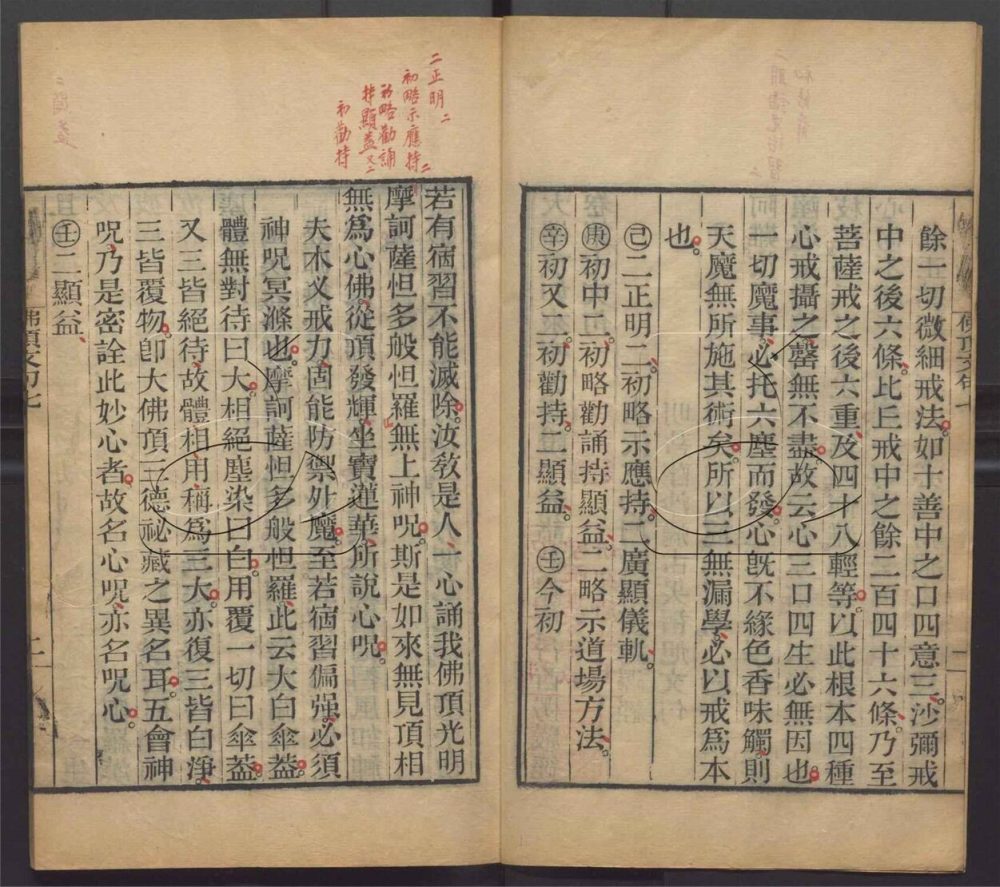 餘一切微細戒法。如十善中之口四意三、沙彌戒
中之後六條。比丘戒中之餘二百四十六條。乃至
菩薩戒之後六重、及四十八輕等。以此根本四種
心戒攝之、罄無不盡。故云心三口四生必無因也。
一切魔事、必托六塵而發。心旣不緣色香味觸、則
天魔無所施其術矣。所以三無漏學、必以戒爲本
也。
㊂己二正明二、初略示應持。二廣顯儀軌。
庚初中二、初略勸誦持顯益。二略示道場方法。
辛初又二、初勸持。二顯益。 壬今初
若有宿習不能滅除。汝敎是人、一心誦我佛頂光明
摩訶薩怛多般怛羅無上神呪。斯是如來無見頂相
無爲心佛、從頂發輝、坐寶蓮華、所說心呪。
夫木叉戒力、固能防禦外魔。至若宿習偏强、必須
神呪冥滌也。摩訶薩怛多般怛羅、此云大白傘蓋。
體無對待曰大。相絕塵染曰白。用覆一切曰傘蓋。
又三皆絕待、故體相用、稱爲三大。亦復三皆白淨、
三皆覆物。卽大佛頂三德祕藏之異名耳。五會神
呪、乃是密詮此妙心者。故名心呪、亦名呪心。
壬二顯益、
二正明二
初略示應持二
初略勸誦
持顯益又二
初勸持
佛頂文句七